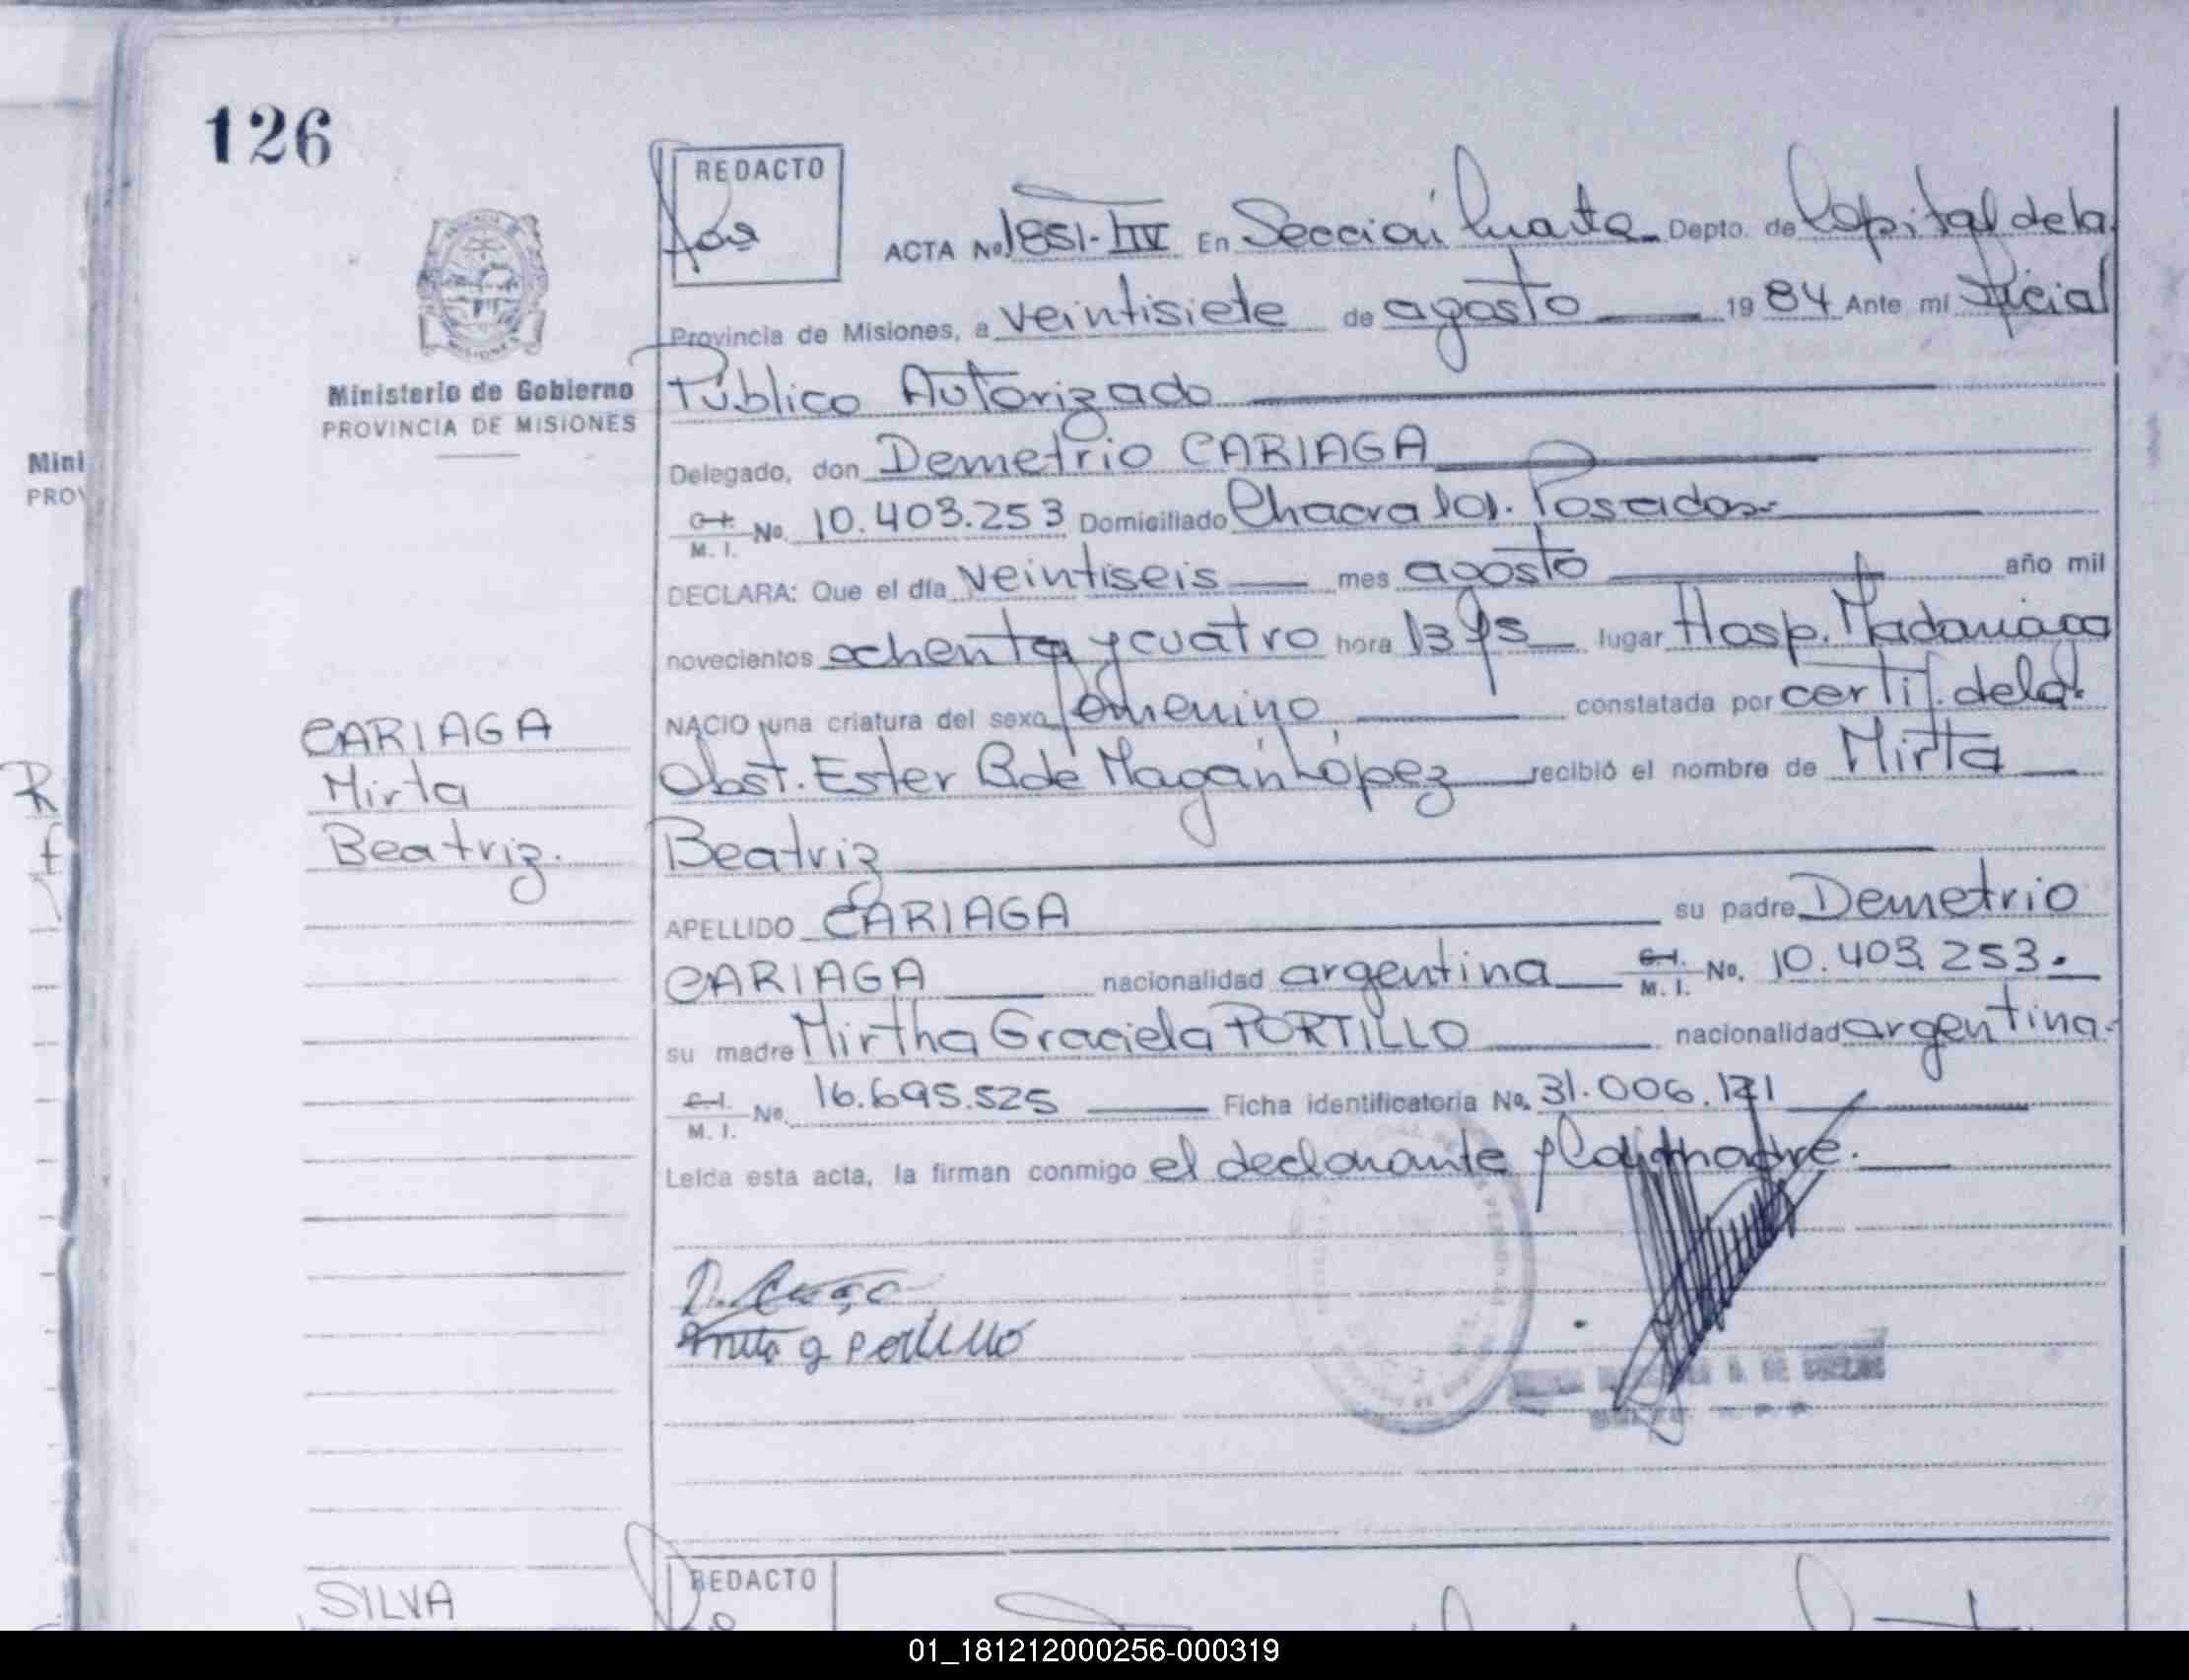 126
REDACTO
ACTA No. 1851-TIV En Sección Cuarta Depto. de Capital de la
Provincia de Misiones, a veintisiete de agosto 1984 Ante mí Oficial
Público Autorizado
Ministerio de Gobierno
PROVINCIA DE MISIONES
Mini
PROV
Delegado, don Demetrio CARIAGA
C.I. M. I. No. 10.403.253 Domiciliado Chacra 101. Posadas
DECLARA: Que el día veintiseis mes agosto año mil
novecientos ochenta y cuatro hora 13 lugar Hosp. Madariaga
NACIO una criatura del sexo femenino constatada por certif. de la
Obst. Ester B. de Magán López recibió el nombre de Mirta
Beatriz
CARIAGA
Mirta
Beatriz.
APELLIDO CARIAGA su padre Demetrio
CARIAGA nacionalidad argentina C.I. M. I. No. 10.403.253.
su madre Mirtha Graciela PORTILLO nacionalidad argentina.
C.I. M. I. No. 16.695.525 Ficha identificatoria No. 31.006.121
Leída esta acta, la firman conmigo el declarante y la madre.
g portillo
SILVA
REDACTO
01_181212000256-000319